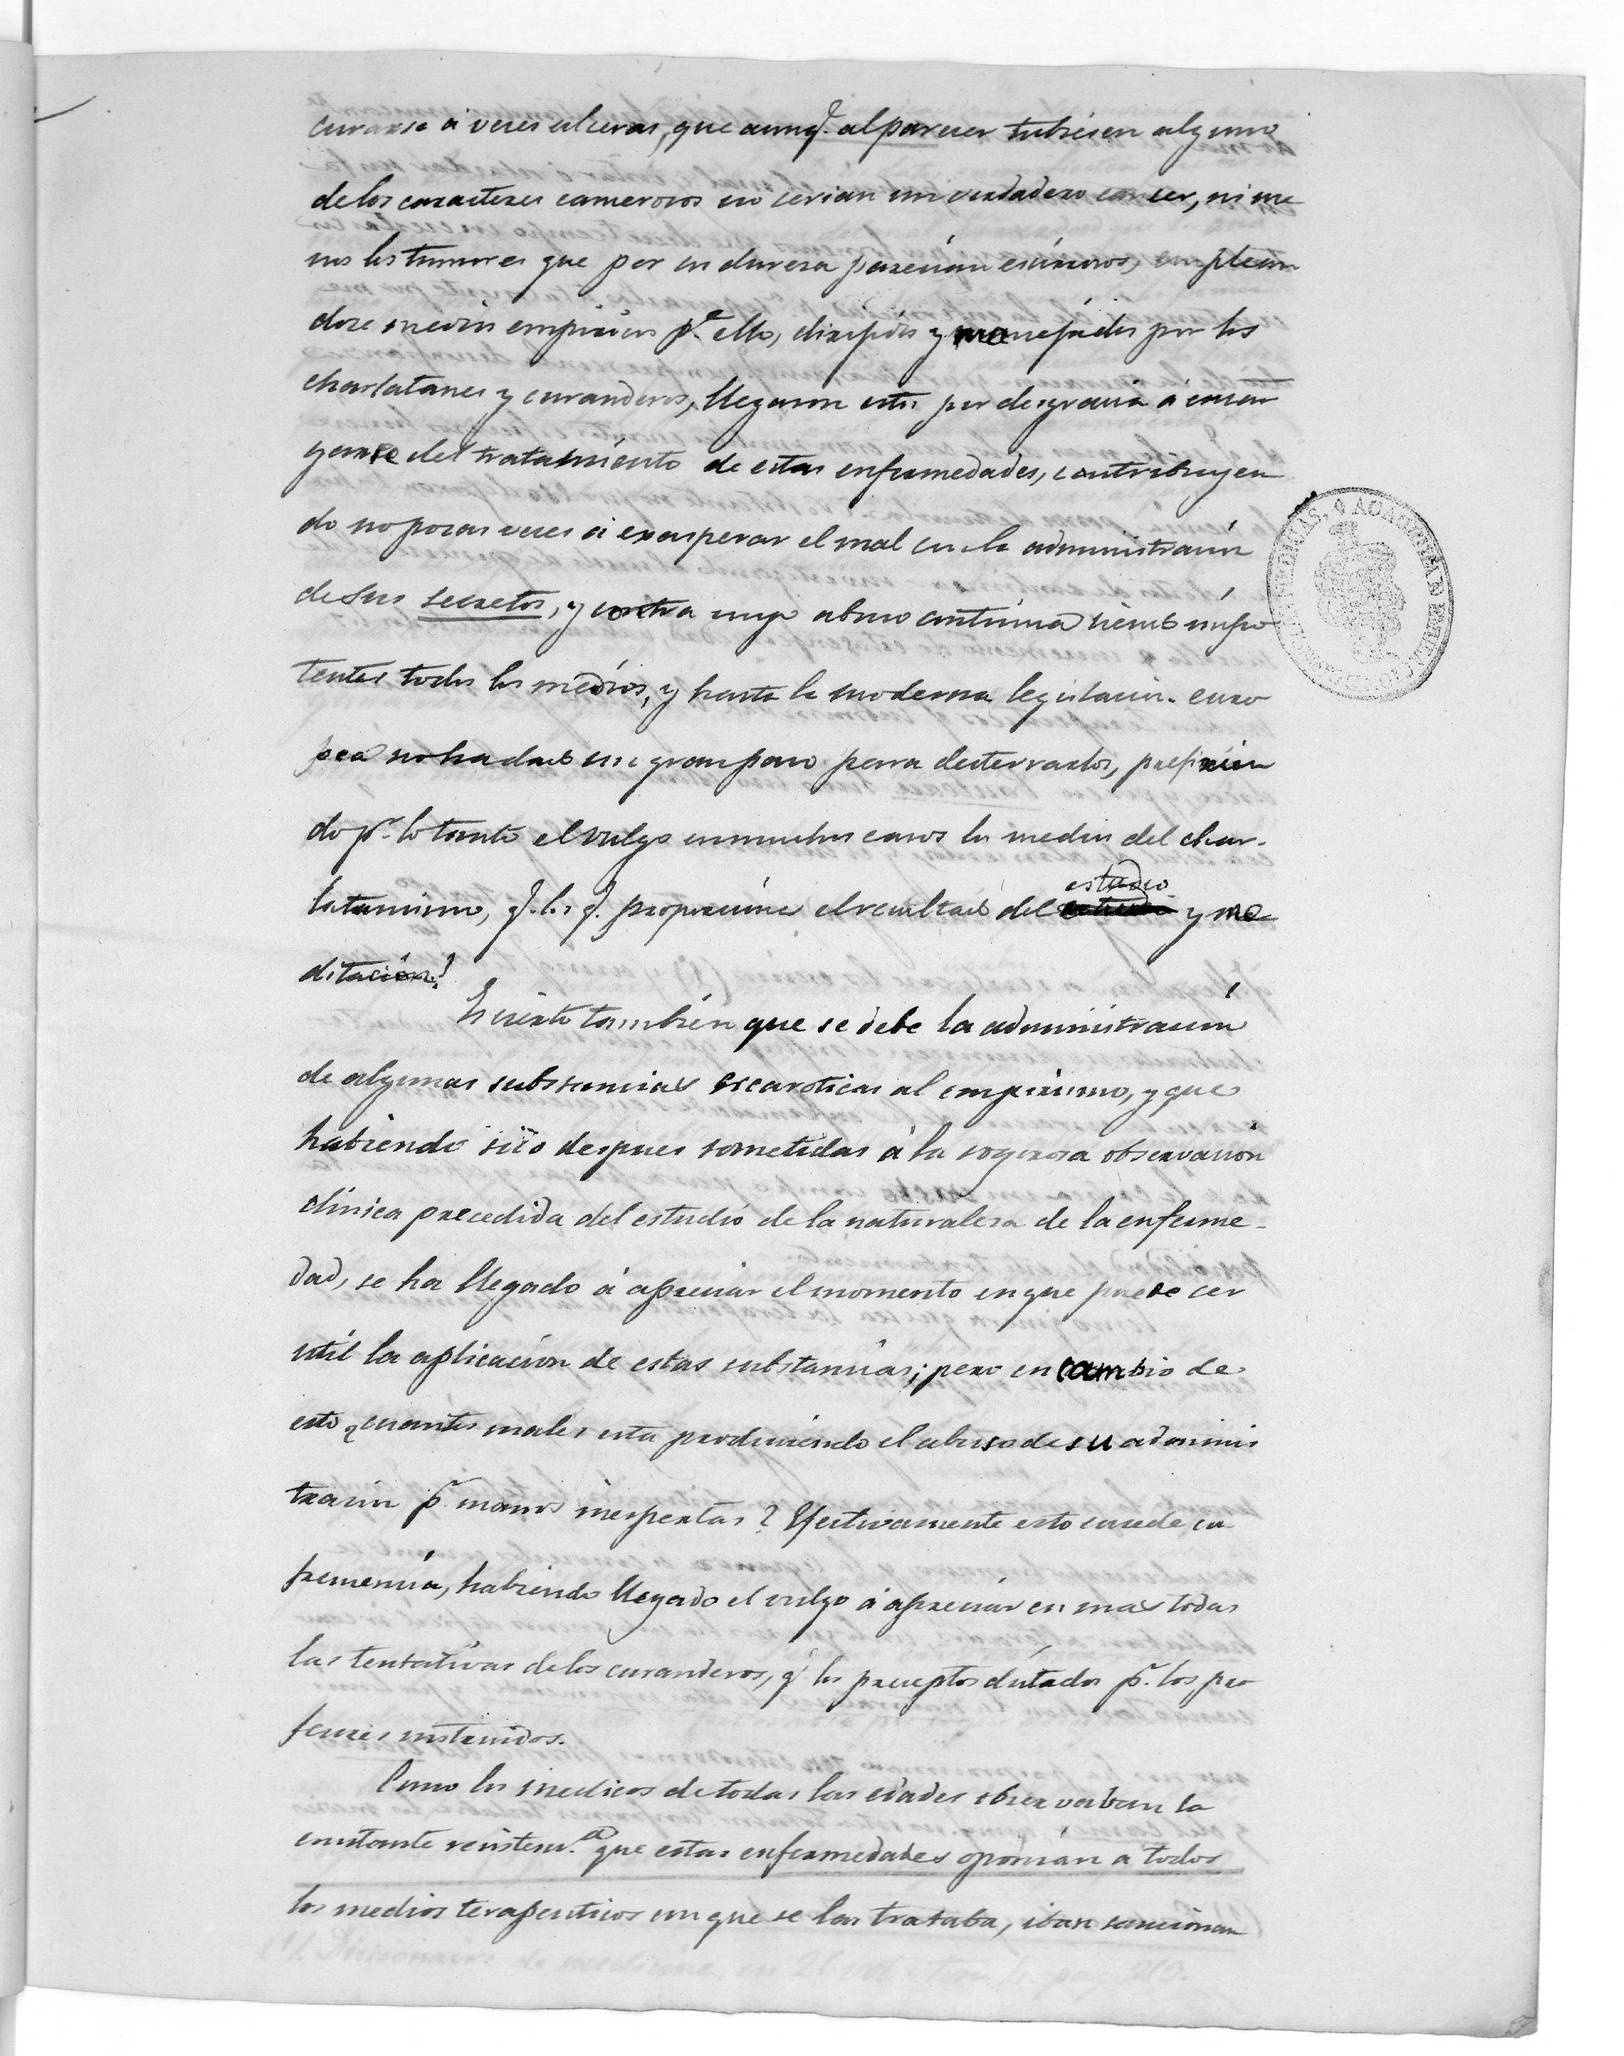 curarse á veces ulceras, que aunq.e al parecer tubiesen alguno
de los caracteres cancerosos no cerian un verdadero cancer, ni me
nos los tumores que por su dureza parecian escirrosos, emplean
dose medios empiricos p.a ello, dirijidos y manejados por los
charlatanes y curanderos, llegaron estos por desgracia á encar
garse del tratamiento de estas enfermedades, contribuyen
do no pocas veces á exasperar el mal en la administracion
de sus secretos, y contra cuyo abuso continua siendo impo
tentes todos los medios, y hasta la moderna legislacion euro
pea no ha dado un gran paso para desterrarlos, prefirien
do p.r lo tanto el vulgo en muchos casos los medios del char-
latanismo, q.e los q.e proporciona el resultado del estudio y me
ditacion?
Es cierto tambien que se debe la administracion
de algunas substancias escaroticas al empirismo, y que
habiendo sido despues sometidas á la rogorosa observacion
clinica precedida del estudio de la naturaleza de la enferme-
dad, se ha llegado á apreciar el momento en que puede cer
util la aplicacion de estas substancias; pero en cambio de
esto ¿cuantos males esta produciendo el abuso de su adminis
tracion p.r manos inespertas? Efectivamente esto sucede con
frecuencia, habiendo llegado el vulgo á apreciar en mas todas
las tentativas de los curanderos, q.e los preceptos dictados p.r los pro
fesores instruidos.
Como los medicos de todas las edades observaban la
constante resistenc.a que estas enfermedades oponian a todos
los medios terapeuticos con que se las trataba, iban sancionan